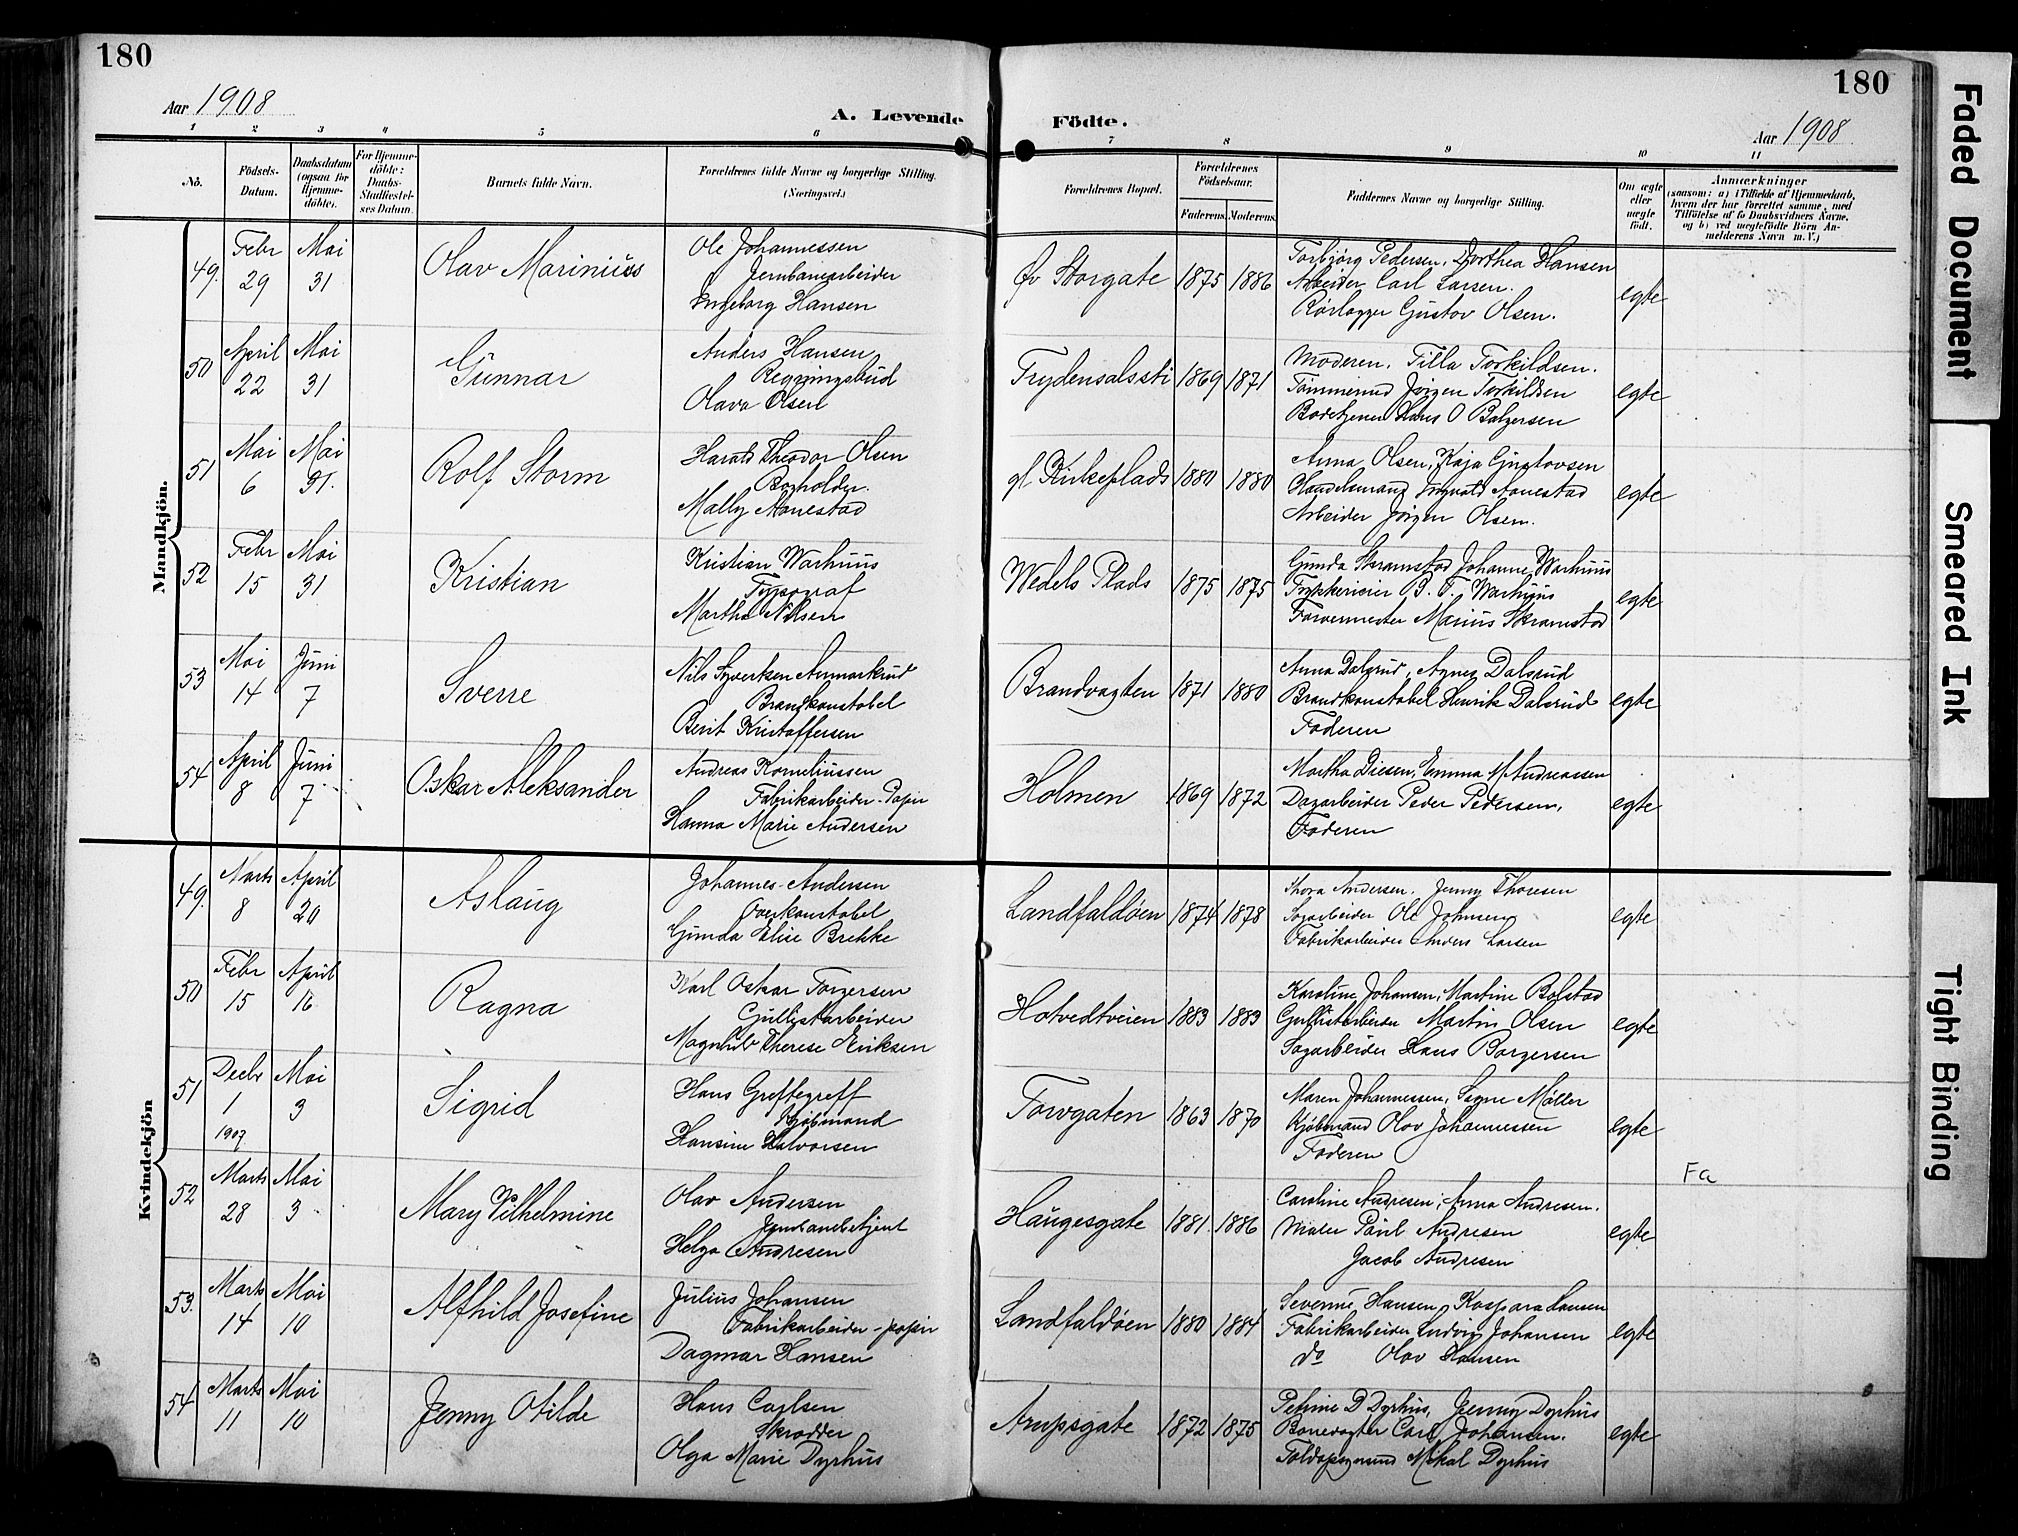 180
180
Aar 1908
A. Levende Födte.
Aar 1908
1 2 3 4 5 6 7 8 9 10 11
No. Födsels-Datum. Daabsdatum (ogsaa for Hjemme-döbte). For Hjemme-döbte: Daabs-Stadfæstel-ses Datum. Barnets fulde Navn. Forældrenes fulde Navne og borgerlige Stilling. (Næringsvei.) Forældrenes Bopæl. Forældrenes Födselsaar. Faderens. Moderens. Faddernes Navne og borgerlige Stilling. Om ægte eller uægte födt. Anmærkninger (saasom: a) i Tilfælde af Hjemmedaab, hvem der har forrettet samme, med Tilföielse af to Daabsvidners Navne, og b) ved uægtefödte Börn An-melderens Navn m. V.)
Mandkjön.
49. Febr 29 Mai 31 Olav Marinius
Ole Johannessen
Jernbanearbeider
Ingeborg Hansen
Øv Storgate 1875 1886
Torbjörg Pedersen, Dorthea Hansen
Arbeider Carl Larsen.
Rörlægger Gustav Olsen.
egte
50 April 22 Mai 31 Gunnar
Anders Hansen
Regningsbud
Olava Olsen
Trydensalssti 1869 1871
Moderen, Tilla Torkildsen.
Tömmermd Jörgen Torkildsen
Hans O Balzersen
egte
51 Mai 6 Mai 31. Rolf Storm
Harald Theodor Olsen
Bogholder.
Mally Aanestad
gl Kirkeplads 1880 1880
Anna Olsen, Kaja Gustavsen
Handelsmand Ingvald Aanestad
Arbeider Jörgen Olsen.
egte
52 Febr 15 Mai 31 Kristian
Kristian Warhuus
Typograf
Martha Nilsen
Wedels Plads 1875 1875
Gunda Skramstad Johanne Warhuus
Trykkerieier B. T. Warhuus
Farvermester Marius Skramstad
egte
53 Mai 14 Juni 7 Sverre
Nils Syvertsen Ammarkrud
Brandkonstabel
Berit Kristoffersen
Brandvagten 1871 1880
Anna Dalsrud, Agnes Dalsrud
Brandkonstabel Henrik Dalsrud
Faderen
egte
54 April 8 Juni 7 Oskar Aleksander
Andreas Korneliussen
Fabrikarbeider-Papir
Hanna Marie Andersen
Holmen 1869 1872
Martha Diesen, Emma M Andreassen
Dagarbeider Peder Pedersen,
Faderen
egte
Kvindekjön
49. Marts 8 April 20 Aslaug
Johannes Andersen
Overkonstabel
Gunda Elise Brekke
Landfaldöen 1874 1878
Thora Andersen, Jenny Thoresen
Sagarbeider Ole Johnsen
Fabrikarbeider Anders Larsen
egte
50 Febr 15 April 16 Ragna
Karl Oskar Torgersen
Gullistarbeider
Magnhild Therese Eriksen
Hotvedtveien 1883 1883
Karoline Johansen, Martine Bolstad
Gullistarbeider Martin Olsen
Sagarbeider Hans Borgersen
egte
51 Decbr 1 1907 Mai 3 Sigrid
Hans Greftegreff
Kjöbmand
Hansine Halvorsen
Torvgaten 1863 1870
Maren Johannessen, Signe Møller
Kjöbmand Olav Johannessen
Faderen
egte
52 Marts 28 Mai 3 Mary Vilhelmine
Olav Andersen
Jernbanebetjent
Helga Andresen
Haugesgate 1881 1886
Caroline Andresen, Anna Andresen.
Maler Paul Andresen
Jacob Andresen
egte
Fa
53. Marts 14 Mai 10 Alfhild Josefine
Julius Johansen
Fabrikarbeider - papir
Dagmar Hansen
Landfaldöen 1880 1884
Severine Hansen, Kaspara Hansen
Fabrikarbeider Ludvig Johansen
do Olav Hansen
egte
54 Marts 11 Mai 10 Jenny Otilde
Hans Carlsen
Skrædder
Olga Marie Dyrhus
Arupsgate 1872 1875
Petrine D Dyrhus, Jenny Dyrhus
Banevogter Carl Johansen.
Mikal Dyrhus
egte
Faded Document
Smeared Ink
Tight Binding